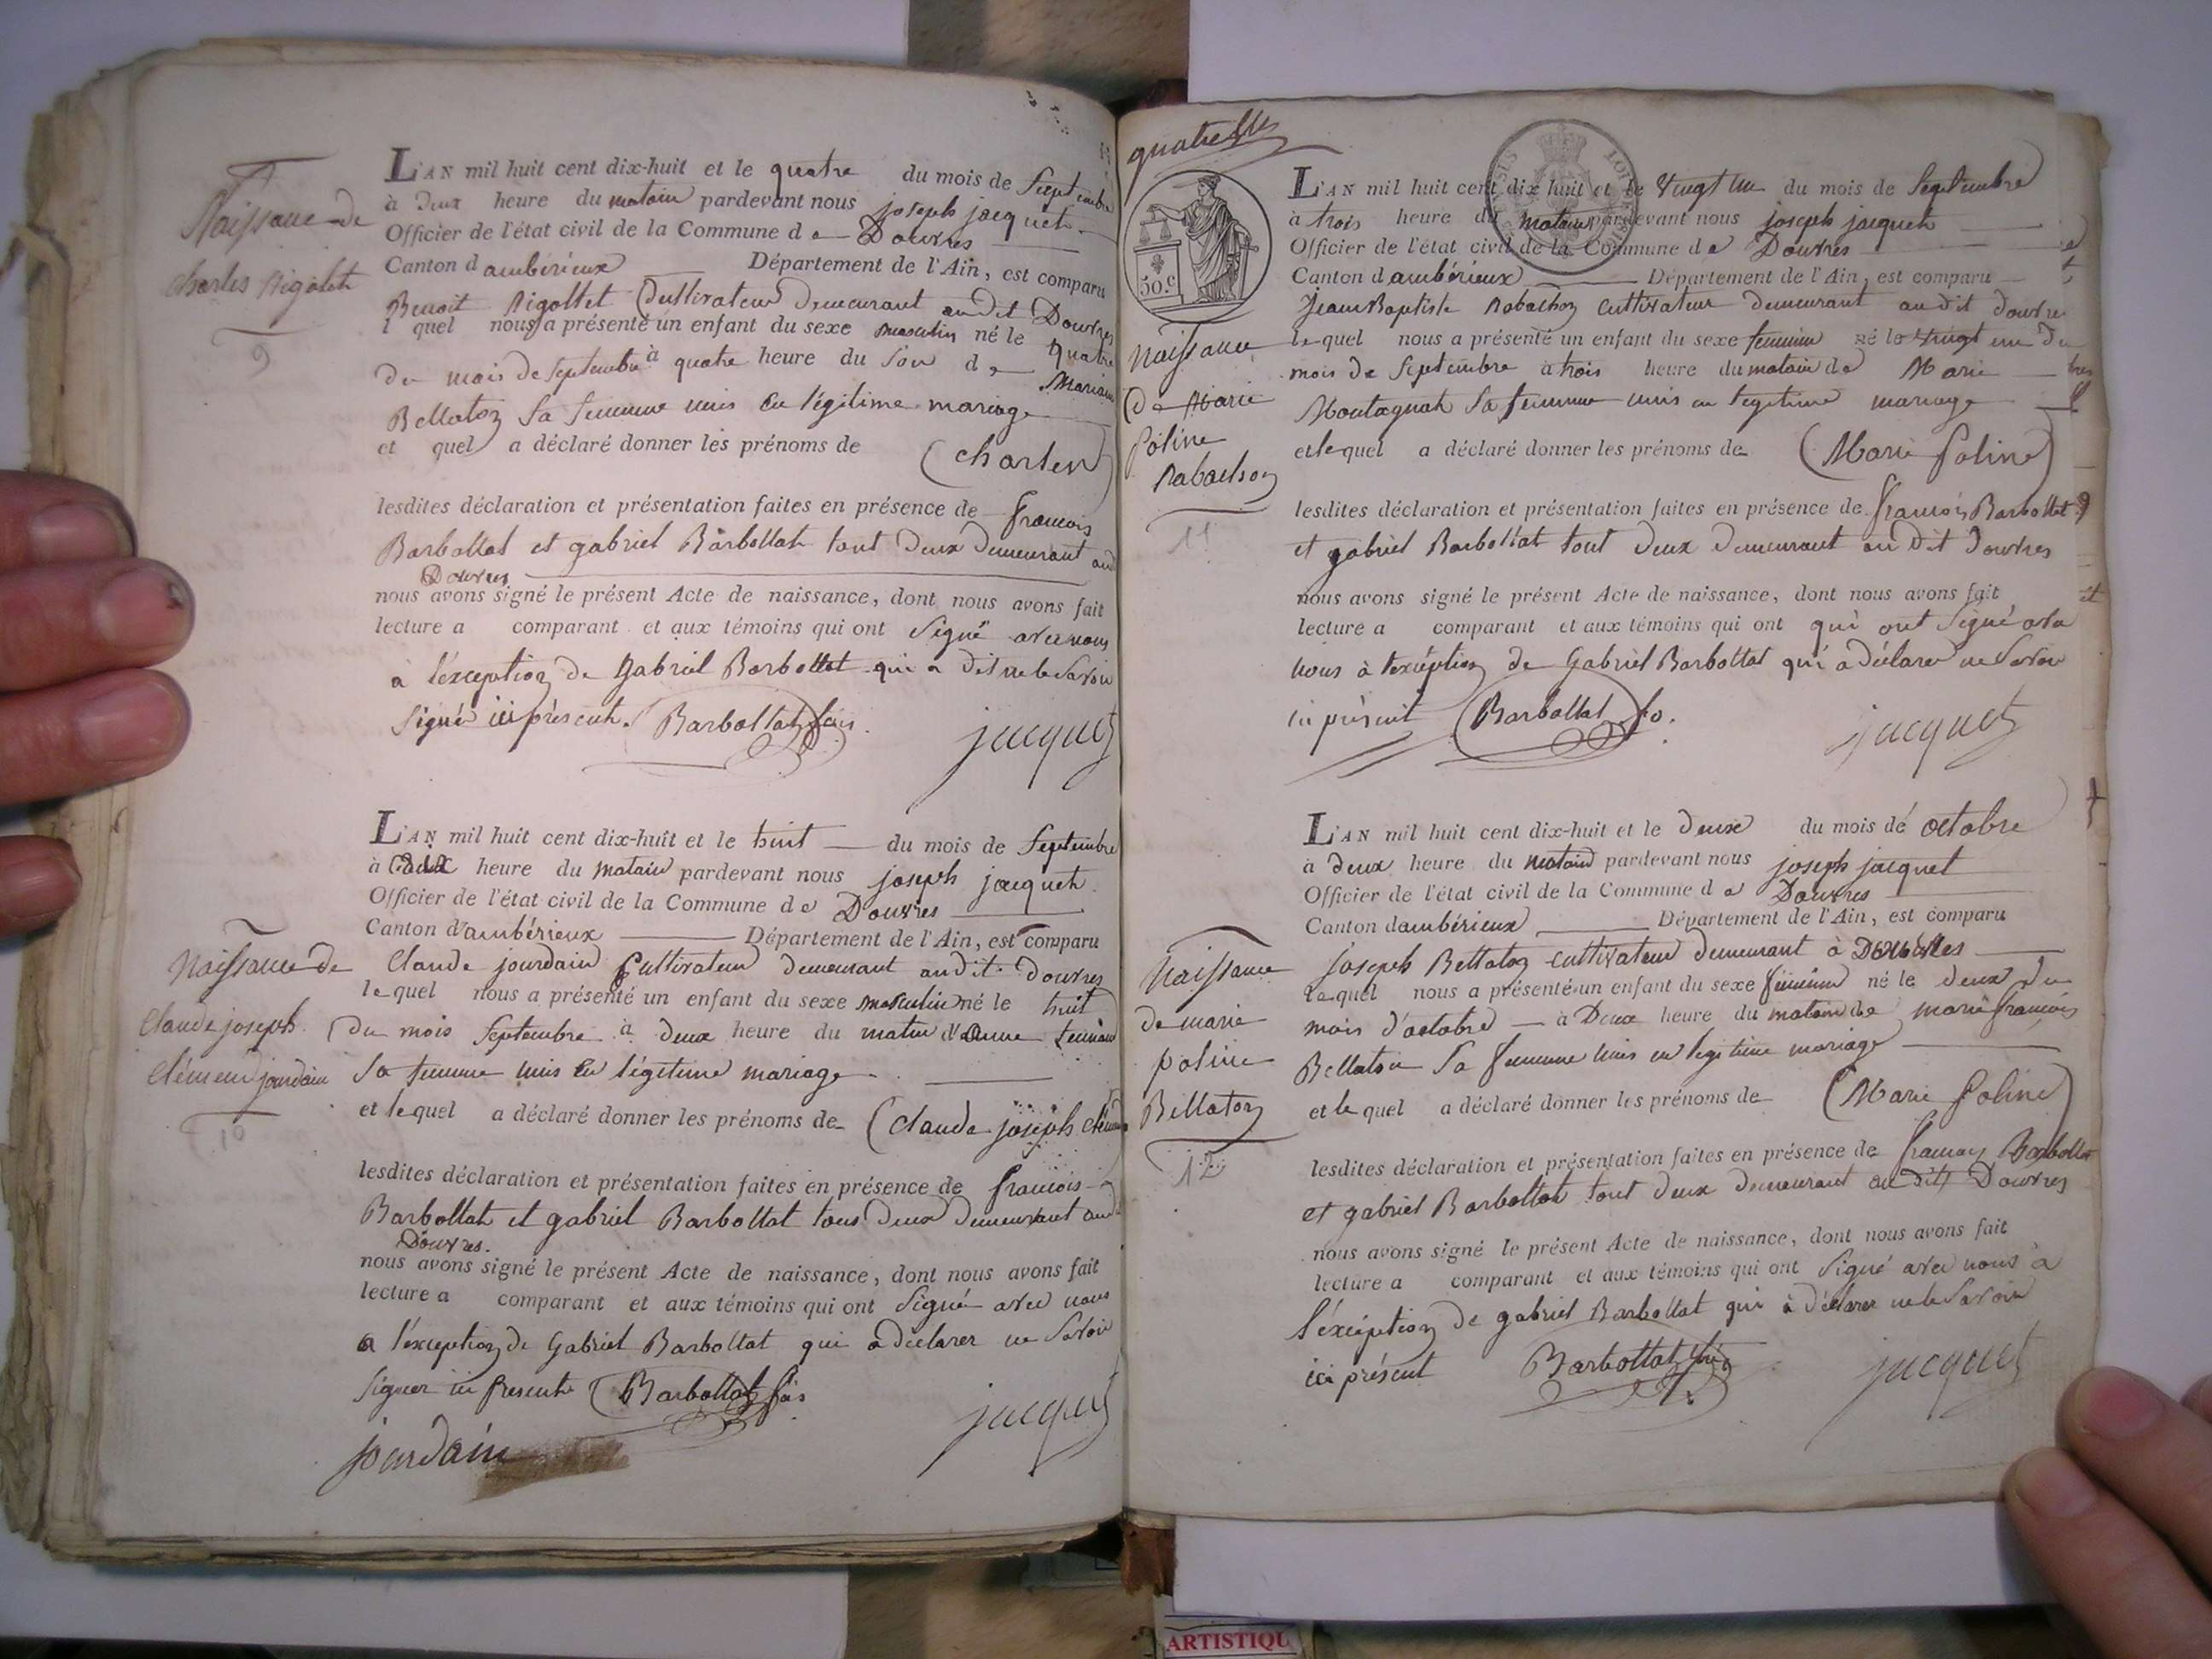 Naissance de
charles Rigolet
9
L'AN mil huit cent dix-huit et le quatre du mois de Septembre
à deux heure du matain pardevant nous joseph jacquet
Officier de l'état civil de la Commune de Douvres
Canton d'ambérieux Département de l'Ain, est comparu
Benoit Rigollet Cultivateur demeurant audit Douvres
lequel nous a présenté un enfant du sexe masculin né le quatre
du mois de Septembre à quatre heure du soir de Mariane
Bellaton sa femme unis en légitime mariage
et quel a déclaré donner les prénoms de (charles)
lesdites déclaration et présentation faites en présence de francois
Barbollat et gabriel Barbollat tout deux demeurant au
Douvres
nous avons signé le présent Acte de naissance, dont nous avons fait
lecture a comparant et aux témoins qui ont Signé avec nous
à l'exception de Gabriel Barbollat qui a dit ne le savoir
signé ici présent. Barbollat fcois
jacquet
Naissance de
Claude joseph
Clément jourdain
10
L'AN mil huit cent dix-huit et le huit du mois de Septembre
à deux heure du matain pardevant nous joseph jacquet
Officier de l'état civil de la Commune de Douvres
Canton d'ambérieux Département de l'Ain, est comparu
Claude jourdain Cultivateur demeurant audit douvres
lequel nous a présenté un enfant du sexe masculin né le huit
du mois Septembre à deux heure du matin d'anne
sa femme unis en légitime mariage
et lequel a déclaré donner les prénoms de (Claude joseph Clément
lesdites déclaration et présentation faites en présence de francois
Barbollat et gabriel Barbollat tous deux demeurant au
Douvres.
nous avons signé le présent Acte de naissance, dont nous avons fait
lecture a comparant et aux témoins qui ont Signé avec nous
a l'exception de Gabriel Barbollat qui a déclarer ne Savoir
signer ici present Barbollat fcois
jourdain jacquet
quatre
50.c
Naissance
de Marie
Poline
Rabachon
11
L'AN mil huit cent dix huit et le vingt un du mois de Septembre
à trois heure du matain pardevant nous joseph jacquet
Officier de l'état civil de la Commune de Douvres
Canton d'ambérieux Département de l'Ain, est comparu
Jean Baptiste Rabachon cultivateur demeurant audit douvre
lequel nous a présenté un enfant du sexe feminin né le vingt un du
mois de Septembre à trois heure du matain de Marie
Montagnat sa femme unis en legitime mariage
et lequel a déclaré donner les prénoms de (Marie Poline)
lesdites déclaration et présentation faites en présence de francois Barbollat
et gabriel Barbollat tout deux demeurant au dit douvres
nous avons signé le présent Acte de naissance, dont nous avons fait
lecture a comparant et aux témoins qui ont qui ont Signé avec
nous à l'exception de Gabriel Barbollat qui a déclaré ne Savoir
ici présent Barbollat fo.
jacquet
Naissance
de marie
poline
Bellaton
12
L'AN mil huit cent dix-huit et le deux du mois de octobre
à deux heure du matain pardevant nous joseph jacquet
Officier de l'état civil de la Commune de Douvres
Canton d'ambérieux Département de l'Ain, est comparu
Joseph Bellaton cultivateur demeurant à Douvres
lequel nous a présenté un enfant du sexe féminin né le deux du
mois d'octobre à Deux heure du matain de marie francois
Bellaton sa femme unis en legitime mariage
et lequel a déclaré donner les prénoms de (Marie Poline)
lesdites déclaration et présentation faites en présence de Barbollat
et gabriel Barbollat tout deux demeurant au dit Douvres
nous avons signé le présent Acte de naissance, dont nous avons fait
lecture a comparant et aux témoins qui ont Signé avec nous à
l'exception de gabriel Barbollat qui à déclarer ne le Savoir
ici présent Barbollat
jacquet
ARTISTIQU